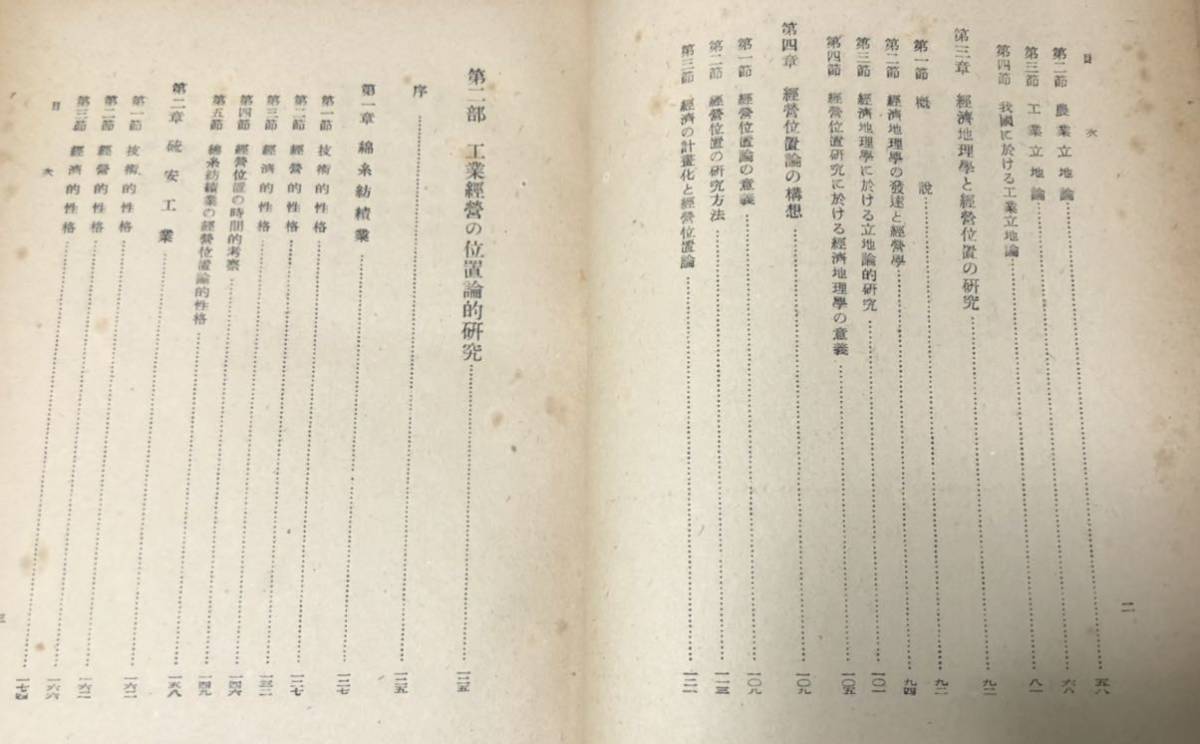 目次
二
第二節 農業立地論……五八
第三節 工業立地論……六八
第四節 我國に於ける工業立地論……八一
第三章 經濟地理學と經營位置の研究……九二
第一節 概說……九二
第二節 經濟地理學の發達と經營學……九四
第三節 經濟地理學に於ける立地論的研究……一〇一
第四節 經營位置研究に於ける經濟地理學の意義……一〇五
第四章 經營位置論の構想……一〇九
第一節 經營位置論の意義……一〇九
第二節 經營位置の研究方法……一一三
第三節 經濟の計畫化と經營位置論……一二一
第二部 工業經營の位置論的硏究……一二五
序……一二五
第一章 綿糸紡績業……一二七
第一節 技術的性格……一二七
第二節 經營的性格……一三二
第三節 經濟的性格……一四六
第四節 經營位置の時間的考察……一四九
第五節 綿糸紡績業の經營位置論的性格……一五八
第二章 硫安工業……一六二
第一節 技術的性格……一六二
第二節 經營的性格……一六六
第三節 經濟的性格……一七四
目次
三